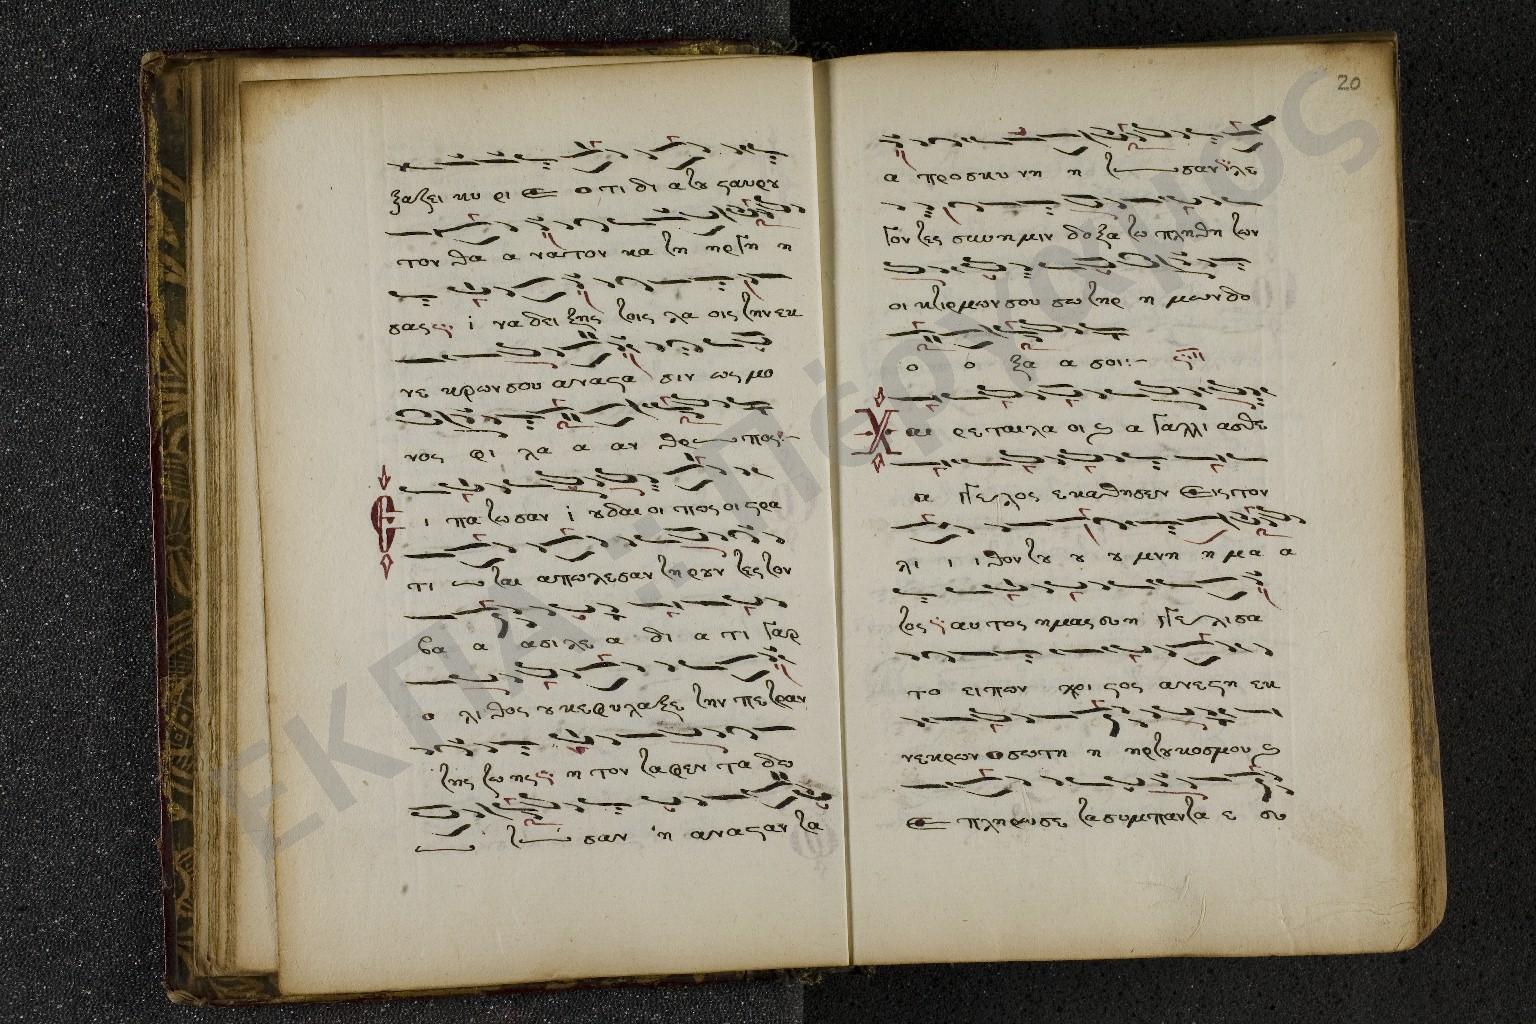 ξαζει κυ ρι ε ο τι δι α του σταυρου
τον θα α να τον κα τη ηργη η
σας ϊ να δει ξης τοις λα οις την εκ
νε κρων σου ανασα σιν ως μο
νος φι λα α αν θρω πος:-
ι πα τωσαν ϊ ουδαι οι πως οι στρα
τι ω ται απωλεσαν τηρουν τες τον
βα α ασιλε α δι α τι γαρ
ο λι θος ουκεφυλαξε την πετραν
της ζω ης η τον ταφεν τα δω
ω τω σαν η ανασαν τα
20
α προσκυ νη η τω σαν λε
γον τες συνημιν δοξα τω πληθη των
οι κτιρμωνσου σωτηρ η μωνδο
ο ο ξα α σοι:-
Χ αι ρεταιλα οι ϗ α γαλλι ασθε
α γγελος εκαθησεν εις τον
λι ι ι θοντου ου ου μνη η μα α
τος αυτος ημας ευη γγελισα
το ειπων χρι στος ανεστη εκ
νεκρων οσωτη η ηρτουκοσμου ϗ
ε πληρωσε τασυμπαντα ε ευ
ΕΚΠΑ:: Πέργαμος